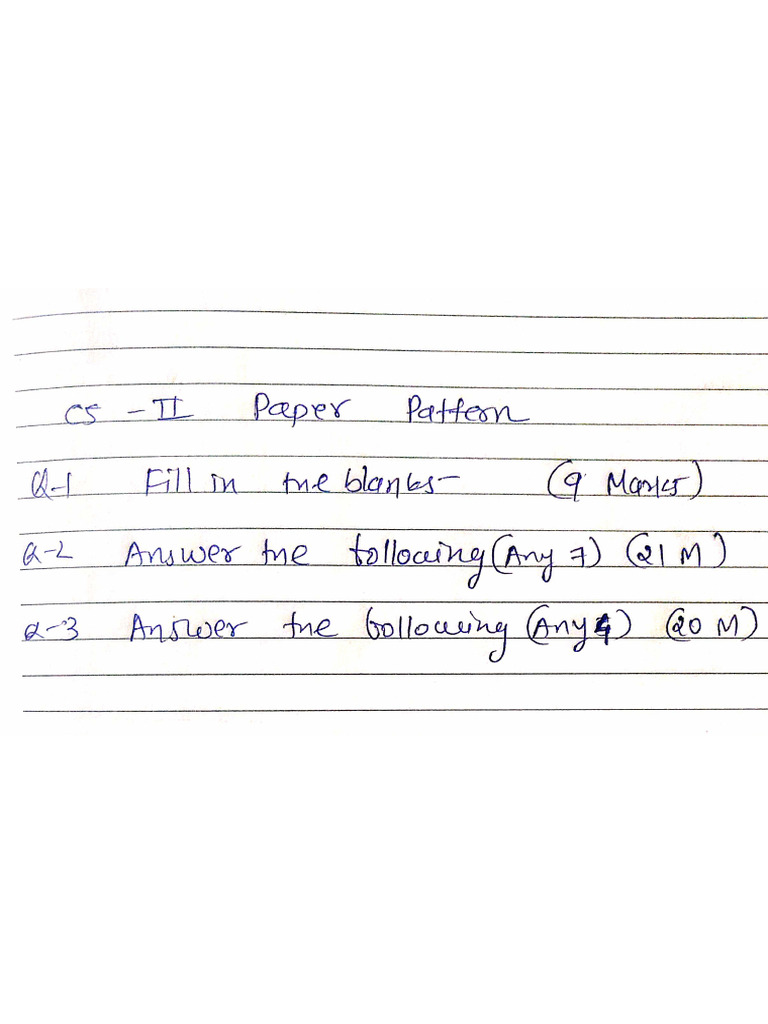 CS - II Paper Pattern
Q-1 Fill in the blanks- (9 Marks)
Q-2 Answer the following (Any 7) (21 M)
Q-3 Answer the following (Any 4) (20 M)